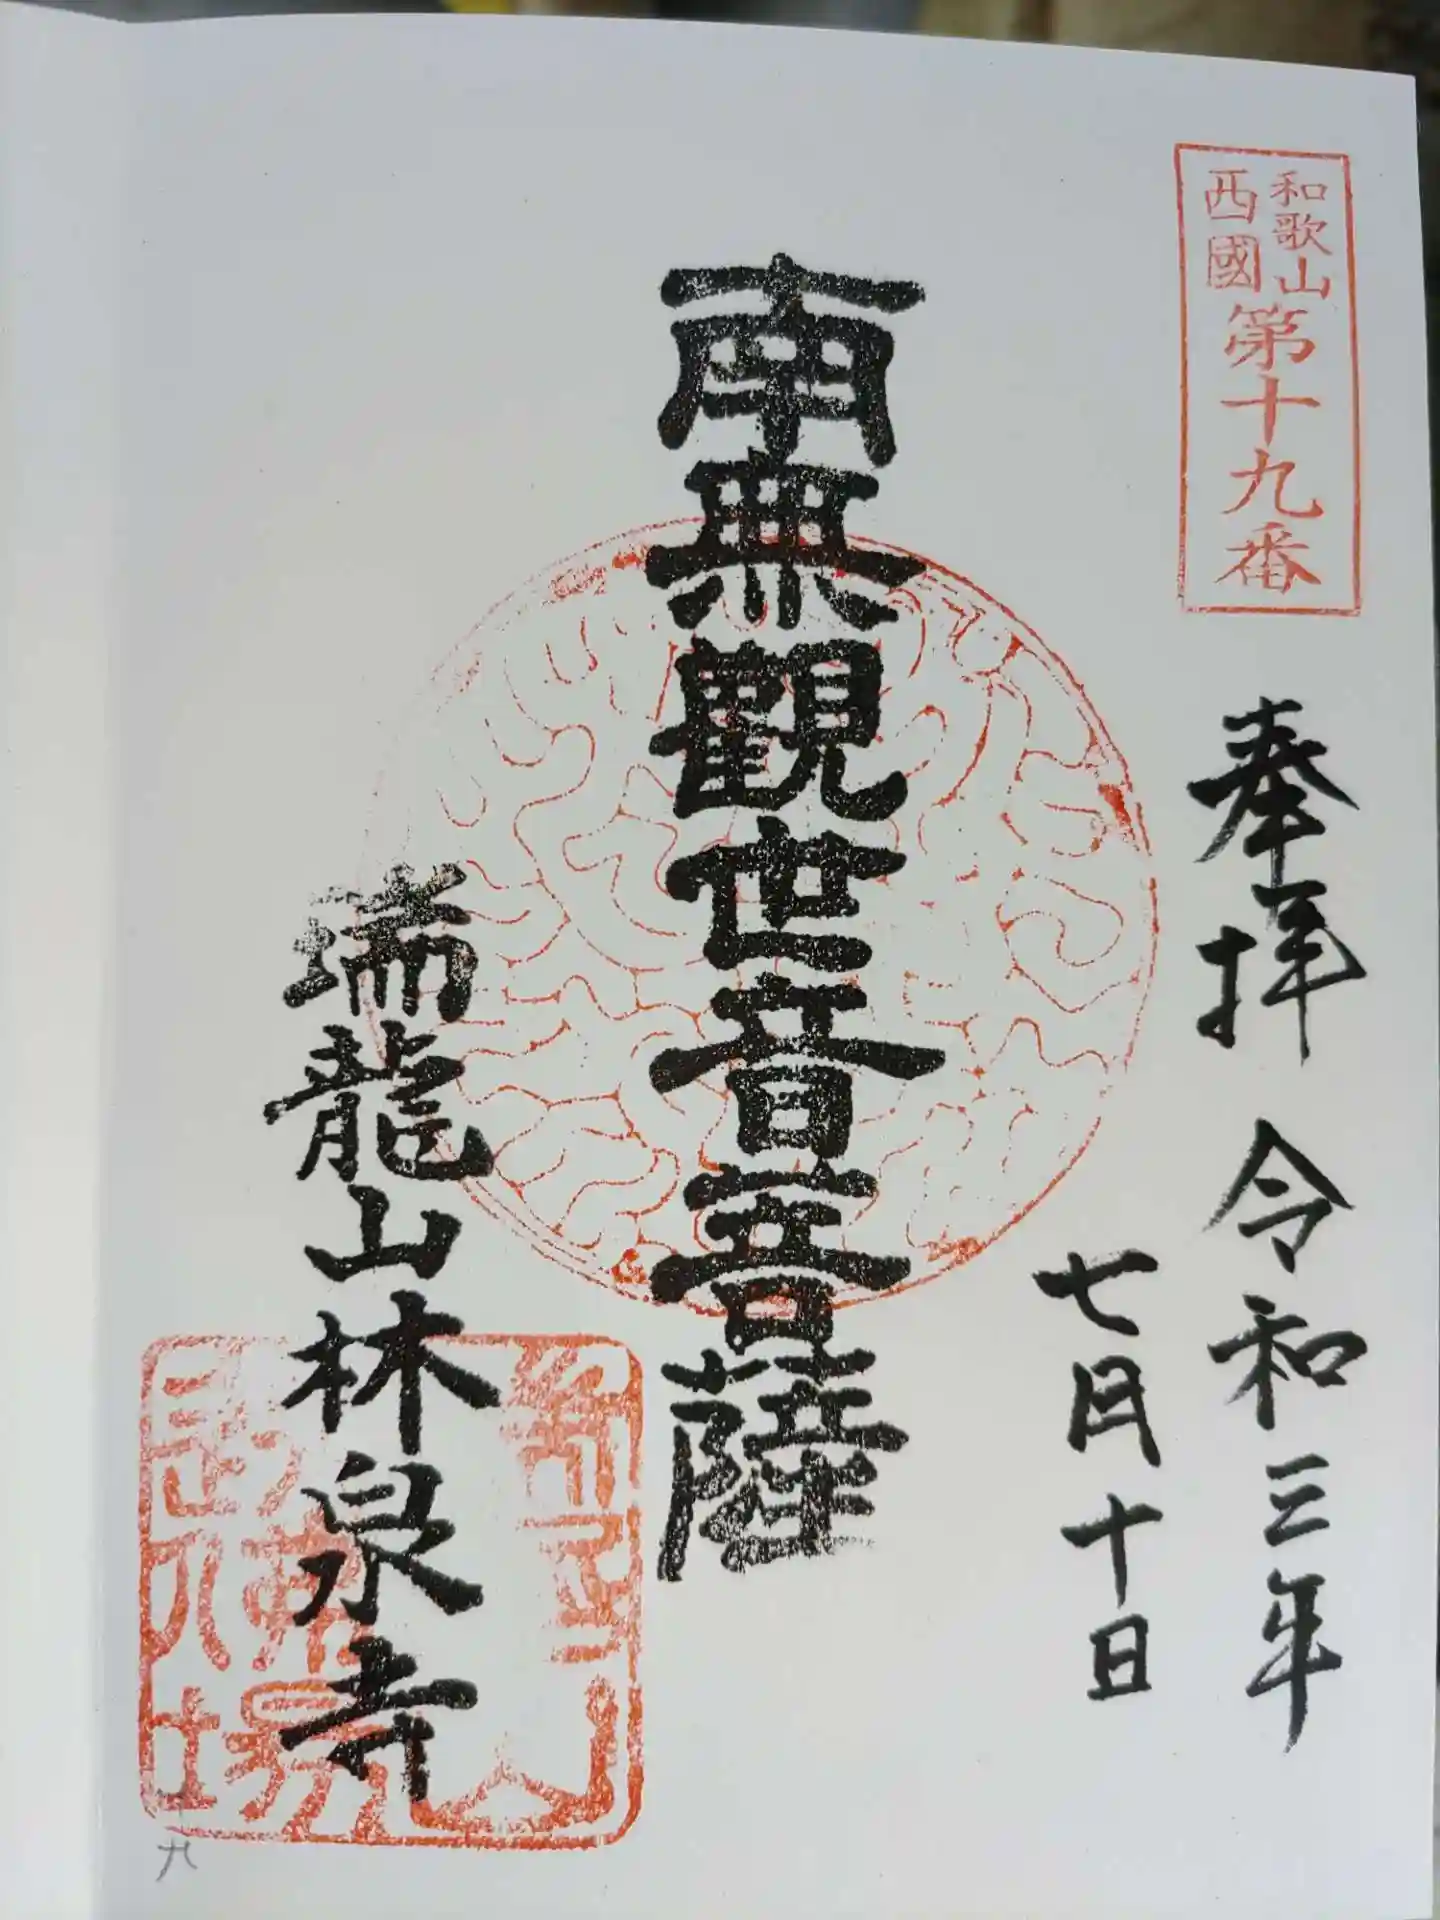 和歌山
西國
第十九番
奉拝 令和三年
七月十日
南無觀世音菩薩
瑞龍山林泉寺
九